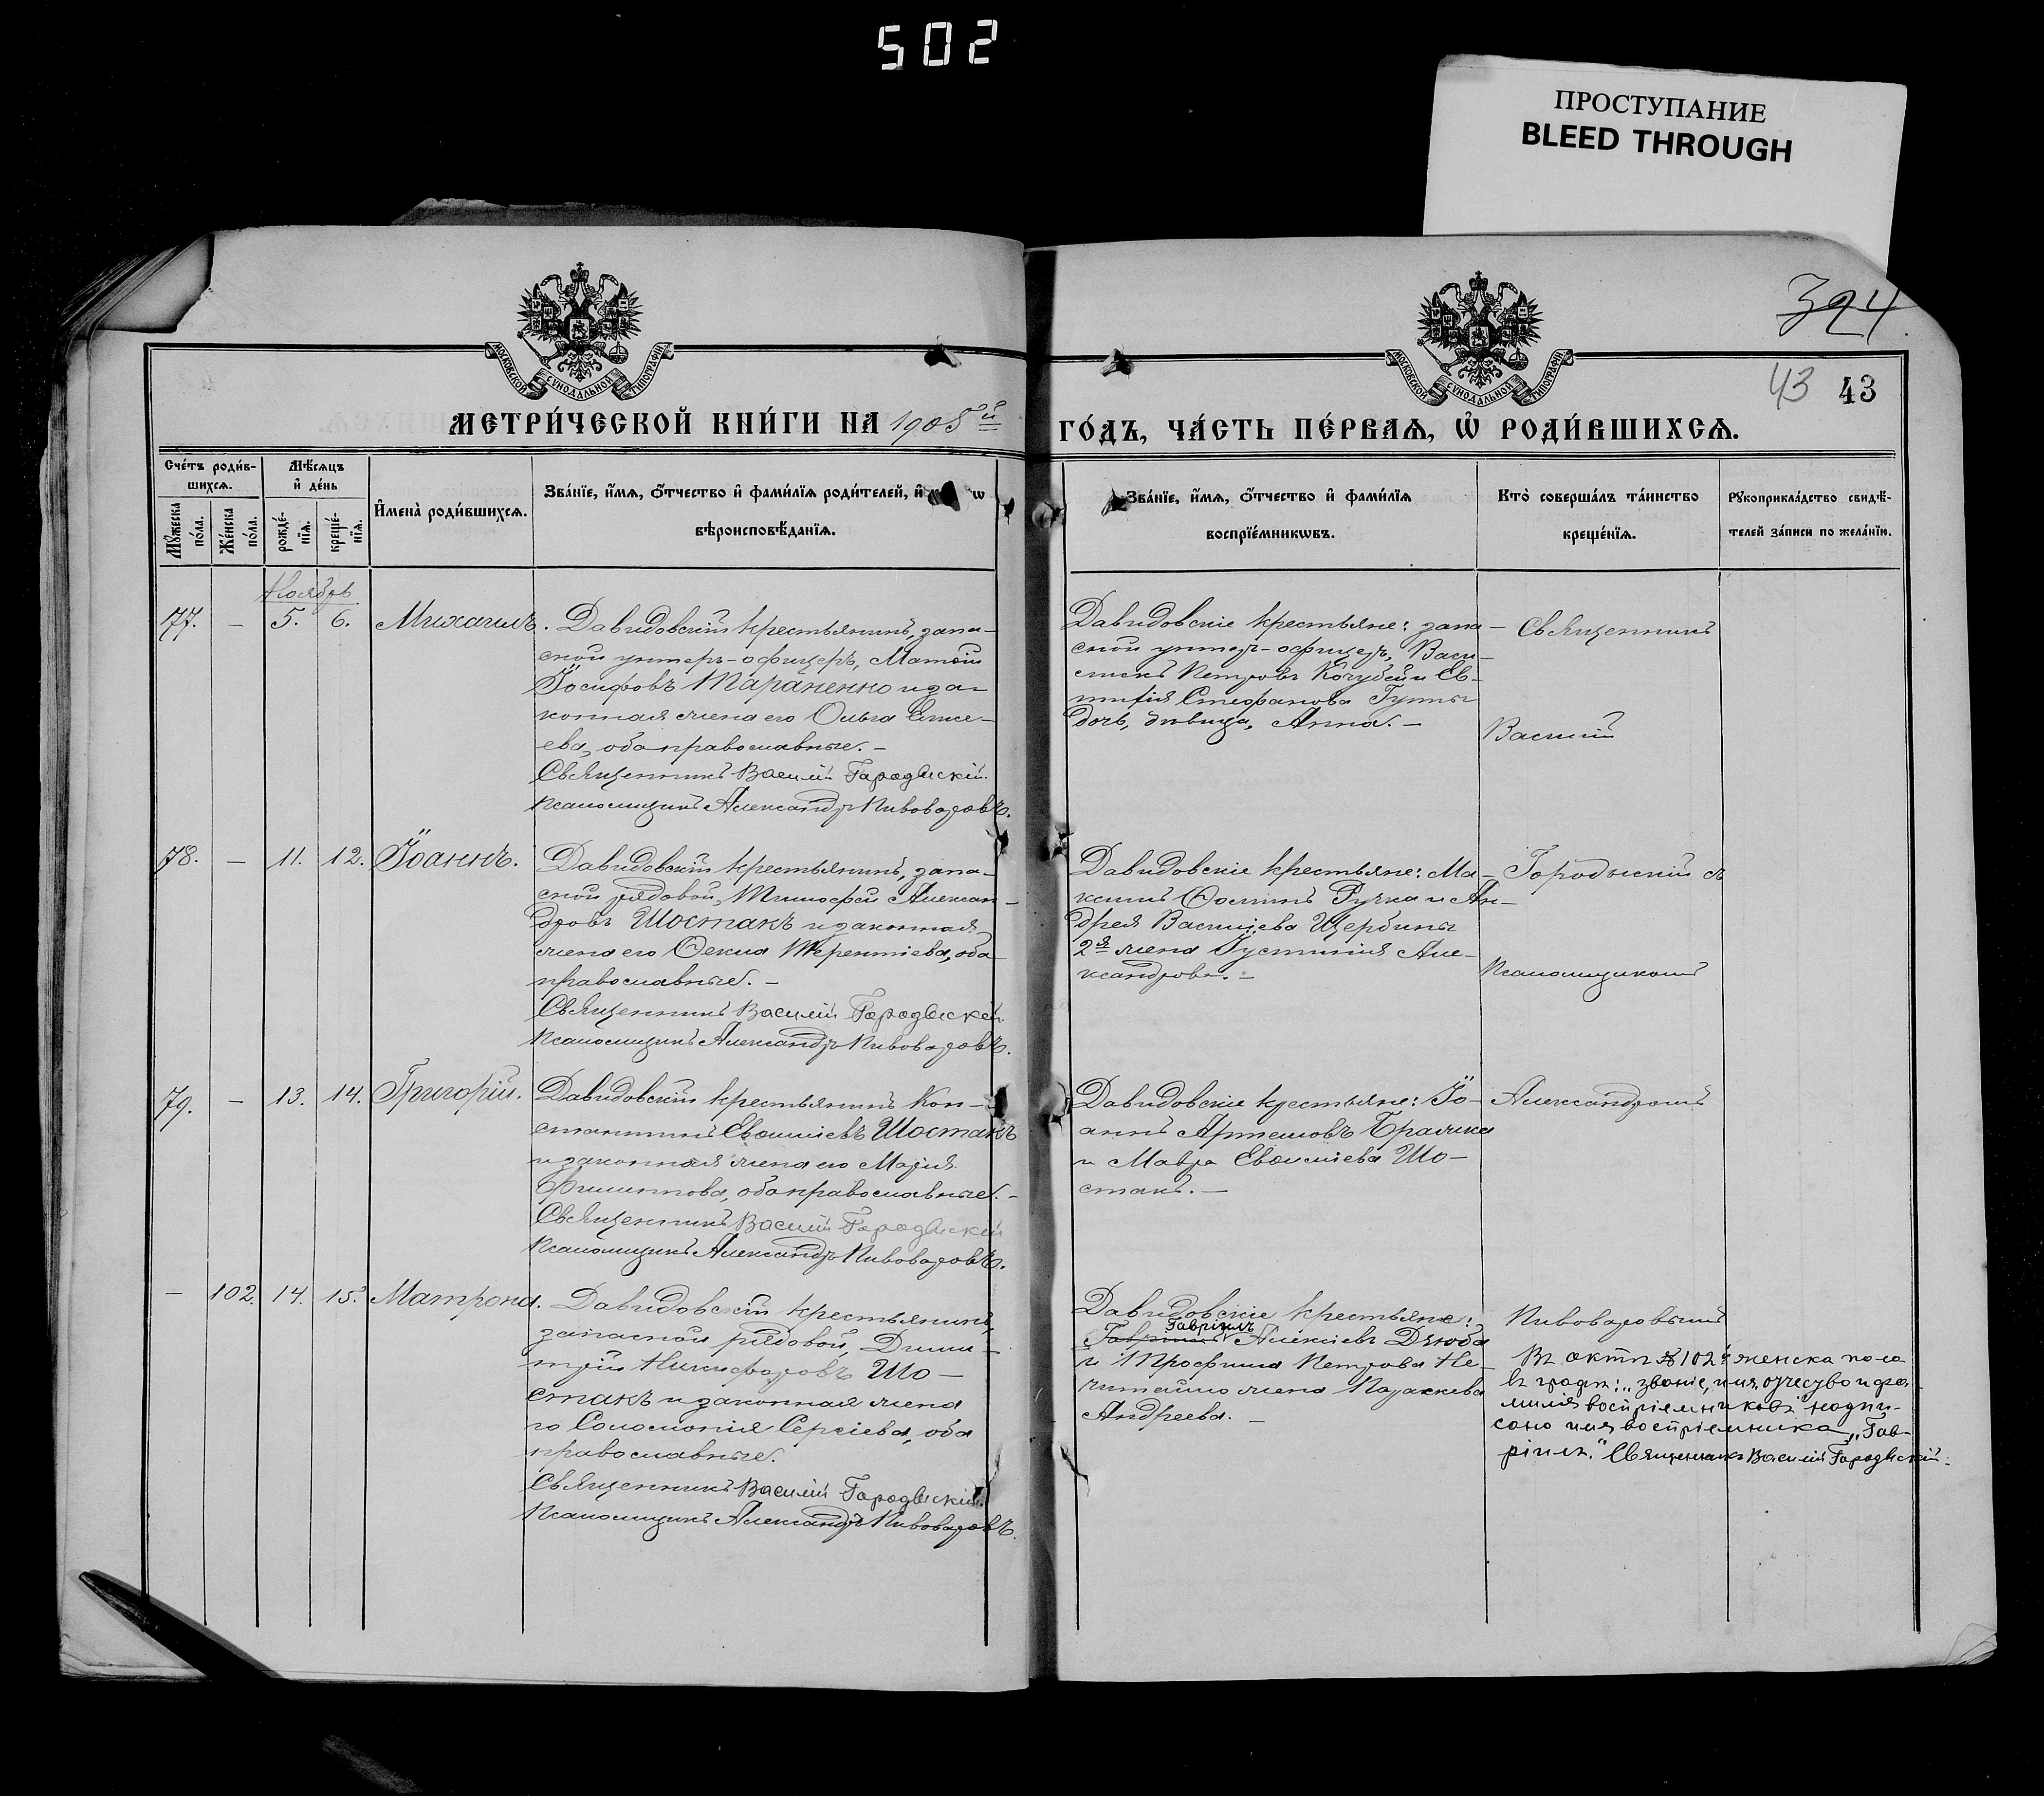 502
ПРОСТУПАНИЕ
BLEED THROUGH
324
43 43
МОСКОВСКОЙ СѴНОДАЛЬНОЙ ТИПОГРАФІИ
МОСКОВСКОЙ СѴНОДАЛЬНОЙ ТИПОГРАФІИ
МЕТРИ́ЧЕСКОЙ КНИ́ГИ НА 1905ой
ГО́ДЪ, ЧА́СТЬ ПЕ́РВАѦ, Ѽ РОДИ́ВШИХСѦ.
Сче́тъ роди́в-
шихсѧ.
Мѣ́сѧцъ
и҆ де́нь
Мꙋ́жеска по́ла.
Же́нска по́ла.
рожде́-
нїѧ.
креще́-
нїѧ.
И҆мена̀ роди́вшихсѧ.
Зва́нїе, и҆́мѧ, ѻ҆́тчество и҆ фами́лїѧ роди́телей, и҆
вѣроисповѣ́данїѧ.
Зва́нїе, и҆́мѧ, ѻ҆́тчество и҆ фами́лїѧ
воспрїе́мникѡвъ.
Кто̀ соверша́лъ та́инство
креще́нїѧ.
Рꙋкоприкла́дство свидѣ́-
телей за́писи по жела́нїю.
Ноябрь
77. — 5. 6. Михаилъ. Давидовскій крестьянинъ, запа-
сной унтеръ-офицеръ, Матѳій
Іосифовъ Тараненко и за-
конная жена его Ольга Елисе-
ева, оба православные. —
Священникъ Василій Городыскій.
Псаломщикъ Александръ Пивоваровъ.
Давидовскіе крестьяне: запа-
сной унтеръ-офицеръ, Васи-
Петровъ Кочубей и Ев-
Стефанова
дочь, дѣвица, Анна. —
Священникъ
Василій
78. — 11. 12. Іоаннъ. Давидовскій крестьянинъ, запа-
сной рядовой, Тимофей Алексан-
дровъ Шостакъ и законная
жена его Ѳекла Терентіева, оба
православные. —
Священникъ Василій Городыскій.
Псаломщикъ Александръ Пивоваровъ.
Давидовскіе крестьяне: Ма-
ксимъ Ѳоминъ Ручка и Ан-
дрея Васильева Щербины
2я жена Іустинія Але-
ксандрова. —
Городыскій съ
Псаломщикомъ
79. — 13. 14. Григорій. Давидовскій крестьянинъ Кон-
стантинъ Евѳиміевъ Шостакъ
и законная жена его Марія
Филиппова, оба православные. —
Священникъ Василій Городыскій
Псаломщикъ Александръ Пивоваровъ.
Давидовскіе крестьяне: Іо-
аннъ Артемовъ Бражка
и Мавра Евѳиміева Шо-
стакъ. —
Александромъ
— 102. 14. 15. Матрона. Давидовскій крестьянинъ,
запасной рядовой, Дими-
трій Никифоровъ Шо-
стакъ и законная жена
его Соломонія Сергіева, оба
православные.
Священникъ Василій Городыскій.
Псаломщикъ Александръ Пивоваровъ.
Давидовскіе крестьяне:
Гавріилъ
Алексіевъ Дзюба
и Трофима Петрова Не-
читайло жена Параскева
Андреева. —
Пивоваровымъ
Въ актѣ № 102й женска пола
въ графѣ: „званіе, имя, отчество и фа-
милія воспріемниковъ" надпи-
сано имя воспріемника „Гав-
ріилъ." Священникъ Василій Городыскій.